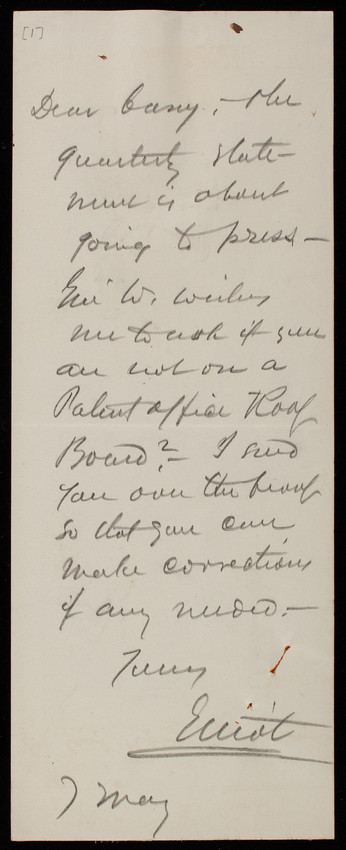 [1]
Dear Casey, - the
quarterly state-
ment is about
going to press -
Gen W. wishes
me to ask if you
are not on a
Patent office Roof
Board? - I send
you over the proof
so that you can
make corrections
if any needed. -
Yours
Elliot
7 May